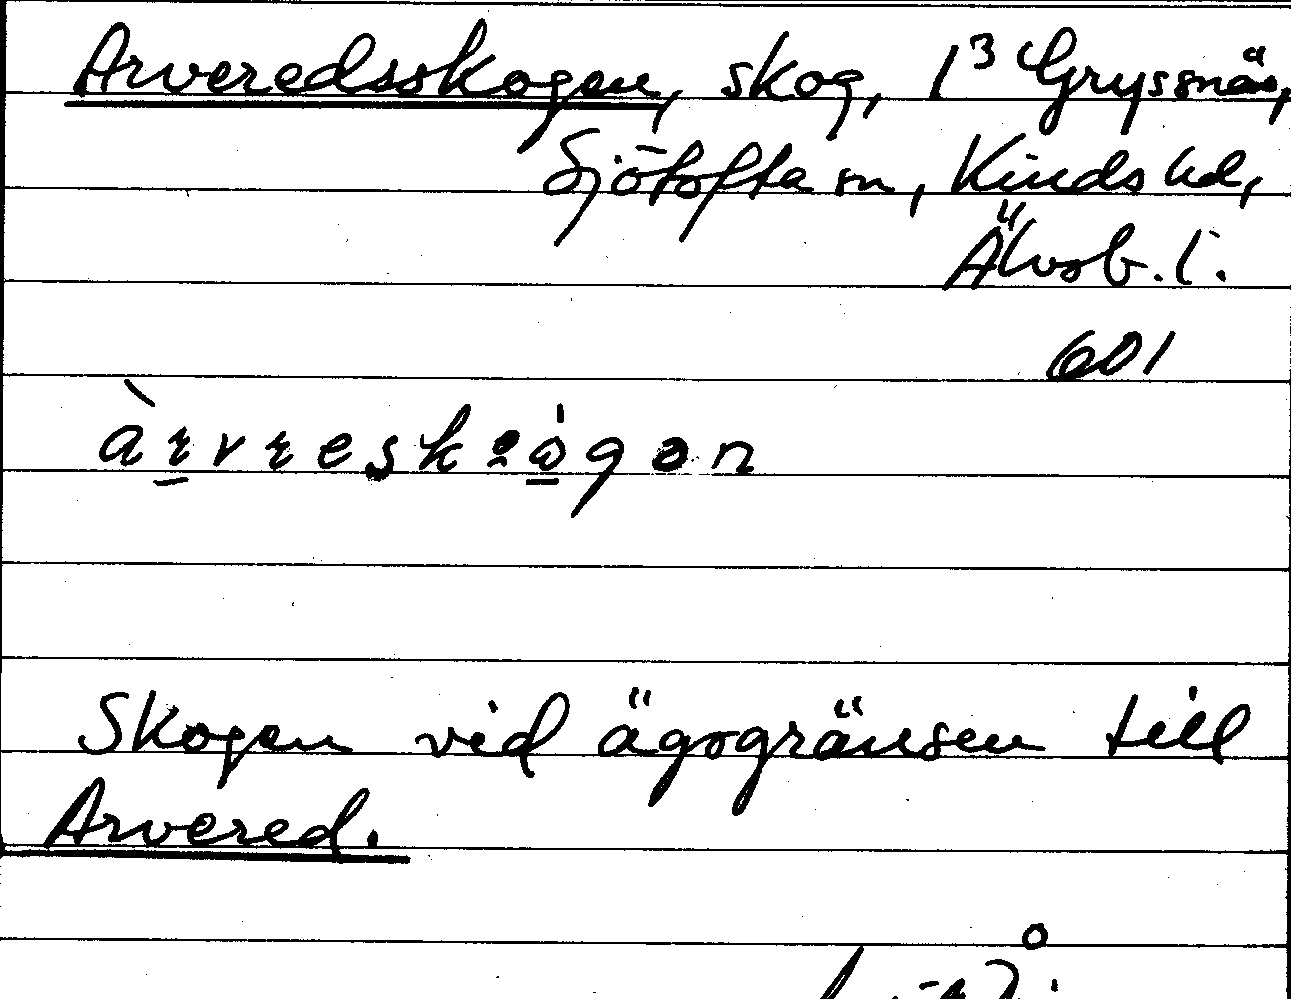 Arveredsskogen, skog, 1³ Gryssnäs,
Sjötofta sn, Kinds hd,
Älvsb. l.
601
Skogen vid ägogränsen till
Arvered.